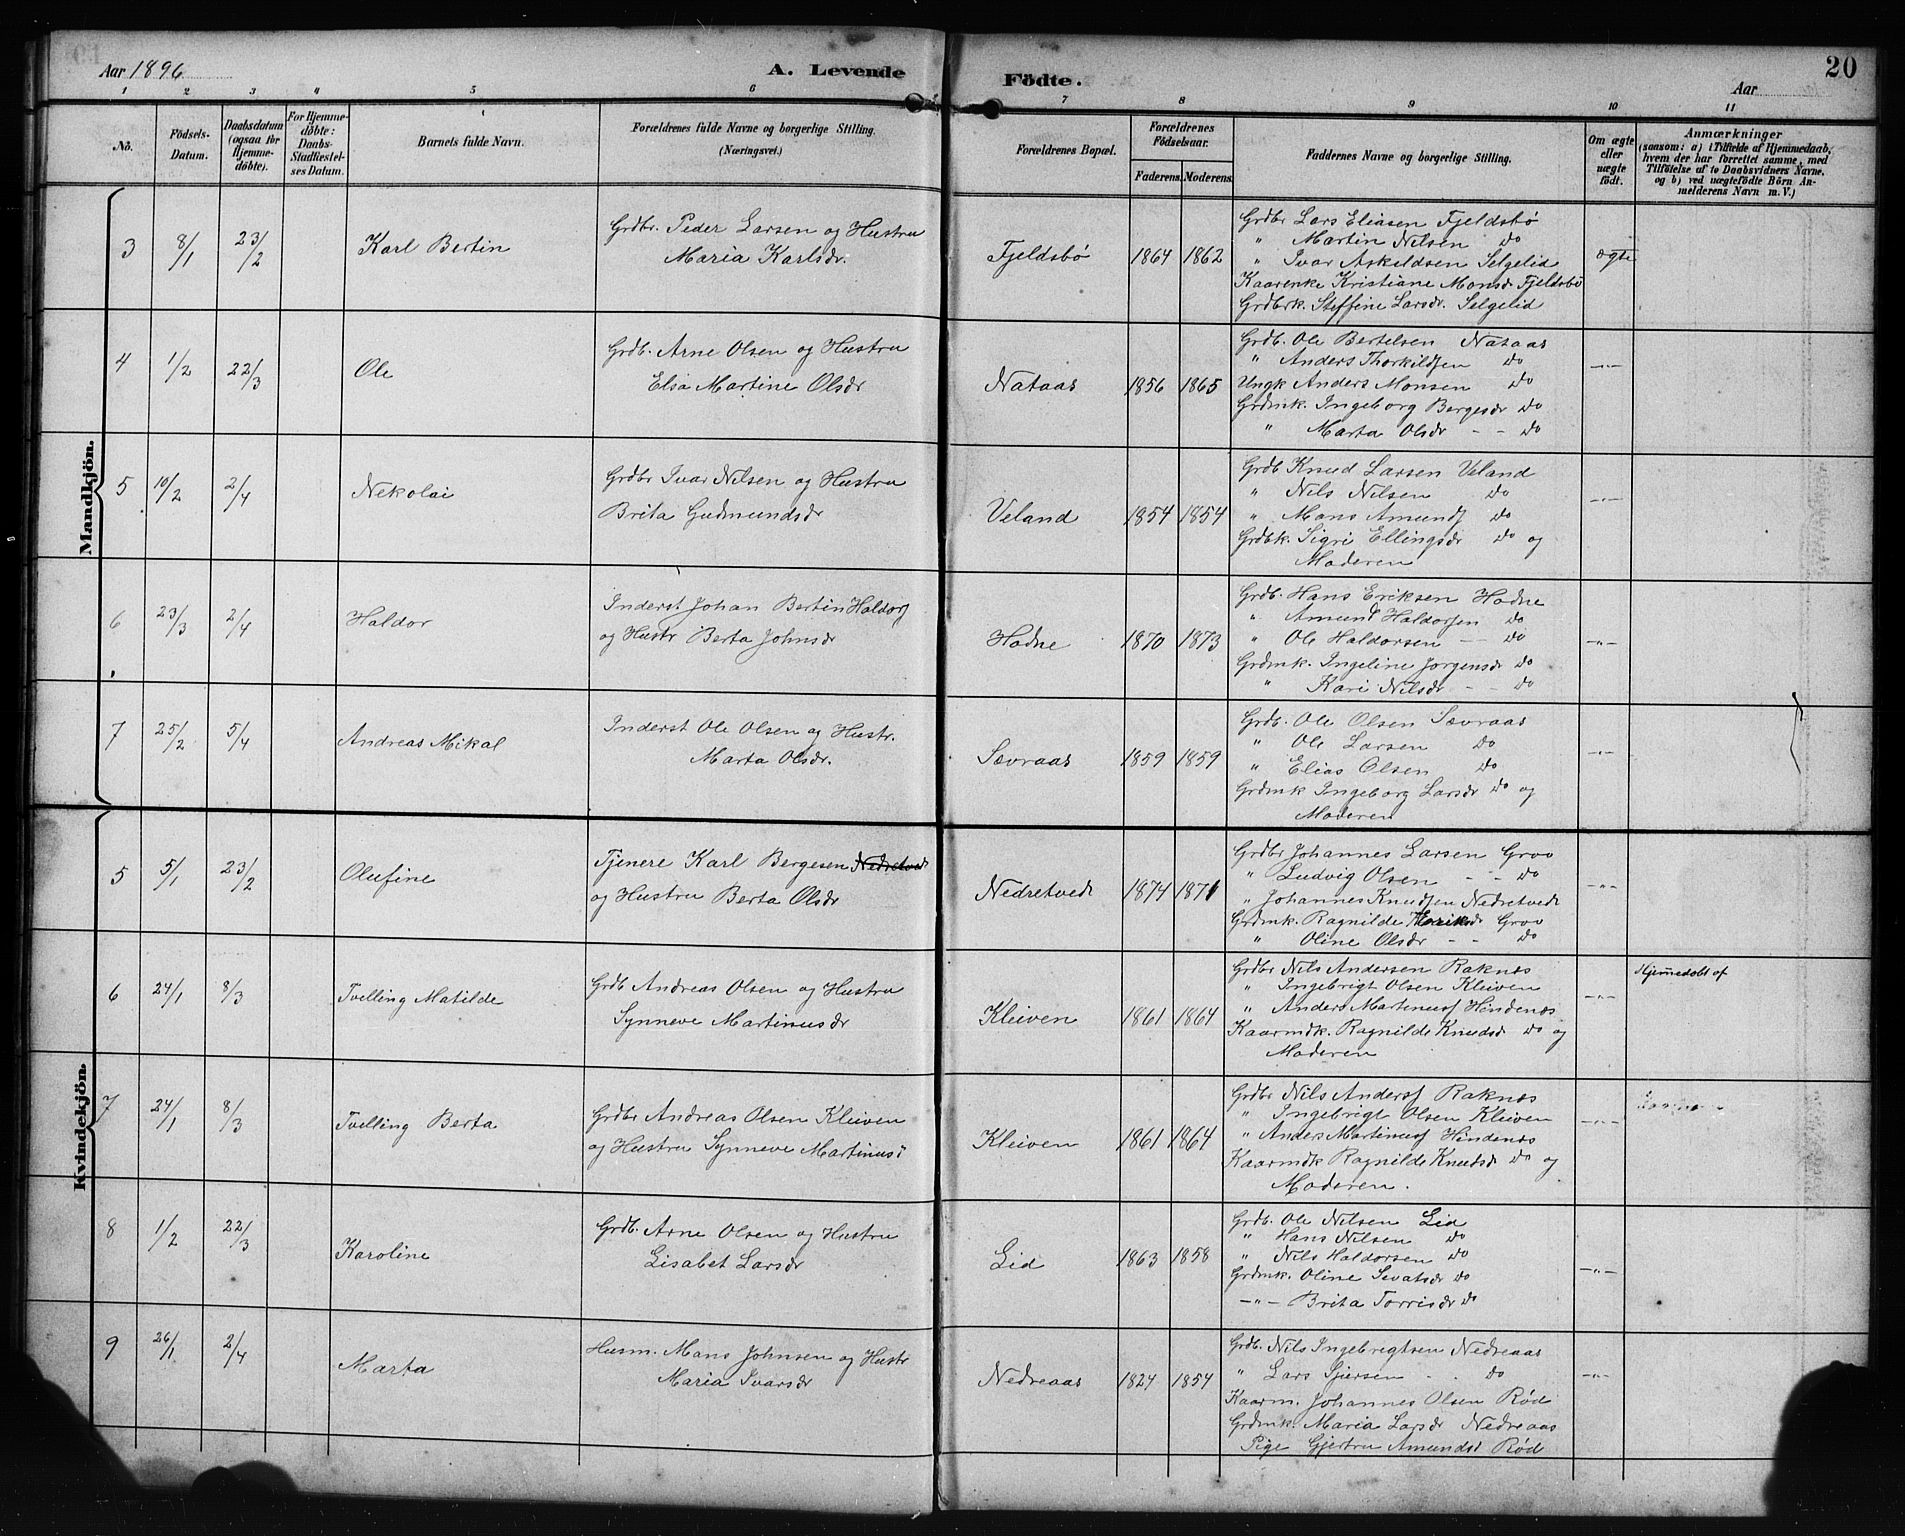 Aar 1896 A. Levende Födte. Aar 20
1 2 3 4 5 6 7 8 9 10 11
No. Födsels-Datum. Daabsdatum (ogsaa for Hjemmedöbte). For Hjemmedöbte: Daabs-Stadfæstelses Datum. Barnets fulde Navn. Forældrenes fulde Navne og borgerlige Stilling. (Næringsvei.) Forældrenes Bopæl. Forældrenes Födselsaar. Faderens. Moderens. Faddernes Navne og borgerlige Stilling. Om ægte eller uægte födt. Anmærkninger (saasom: a) i Tilfælde af Hjemmedaab, hvem der har forrettet samme, med Tilföielse af to Daabsvidners Navne, og b) ved uægtefödte Börn Anmelderens Navn m. V.)
Mandkjön.
3 8/1 23/2 Karl Bertin Grdbr. Peder Larsen og Hustru
Maria Karlsdr. Fjeldsbø 1864 1862 ægte
Grdbr Lars Eliasen Fjeldsbø
" Martin Nilsen Do
" Ivar Askeldsen Selgelid
Kaarenke Kristiane Monsdr Fjeldsbø
Grdbrk. Steffine Larsdr. Selgelid
4 1/2 22/3 Ole Grdb. Arne Olsen og Hustru
Elsa Martine Olsdr Nataas 1856 1865 —"—
Grdb. Ole Bertelsen Nataas
" Anders Thorkildsen Do
Ungk Anders Monsen Do
Grdmk. Ingeborg Bergesdr Do
" Marta Olsdr - - Do
5 10/2 2/4 Nekolai Grdbr Ivar Nilsen og Hustru
Brita Gudmundsdr Veland 1854 1854 —"—
Grdb Knud Larsen Veland
" Nils Nilsen Do
" Mons Amunds Do
Grdbk. Sigri Ellingsdr Do og
Moderen
6 23/3 2/4 Haldor Inderst Johan Bertin Haldors
og Hustr Berta Johnsdr Hodne 1870 1873 —"—
Grdb. Hans Eriksen Hodne
" Amund Haldorsen Do
" Ole Haldorsen — Do
Grdmk. Ingeline Jørgensdr Do
" Kari Nilsdr - - Do
7 25/2 5/4 Andreas Mikal Inderst Ole Olsen og Hustr.
Marta Olsdr. Sævraas 1859 1859 —"—
Grdb. Ole Olsen Sævraas
" Ole Larsen Do
" Elias Olsen Do
Grdmk Ingeborg Larsdr Do og
Moderen
Kvindekjön.
5 5/1 23/2 Olufine Tjenere Karl Bergesen Nedretvedt
og Hustru Berta Olsdr Nedretvedt 1874 1871 —"—
Grdbr Johannes Larsen Grov
" Ludvig Olsen - - Do
" Johannes Knudsen Nedretvedt
Grdmk. Ragnilde Grov
" Oline Olsdr - - Do
6 24/1 8/3 Tvelling Matilde Grdb Andreas Olsen og Hustru
Synneve Martinusdr Kleiven 1861 1864 —"— Hjemmedøbt af
Grdbr Nils Andersen Raknæs
" Ingebrigt Olsen Kleiven
" Anders Martinus Hindenæs
Kaarmdk. Ragnilde Knudsdr Do og
Moderen
7 24/1 8/3 Tvelling Berta Grdbr Andreas Olsen Kleiven
og Hustru Synneve Martinus Kleiven 1861 1864 —"—
Grdbr Nils Anders Raknæs
" Ingebrigt Olsen Kleiven
" Anders Martinus Hindenæs
Kaarmdk Ragnilde Knudsdr Do og
Moderen.
8 1/2 22/3 Karoline Grdb. Arne Olsen og Hustru
Lisabet Larsdr Lid 1863 1858 —"—
Grdb. Ole Nilsen Lid
" Hans Nilsen Do
" Nils Haldorsen Do
Grdmk. Oline Sevatsdr Do
—"— Brita Torrisdr Do
9 26/1 2/4 Marta Husm. Mons Johnsen og Hustr
Maria Ivarsdr Nedreaas 1824 1854 —"—
Grdb. Nils Ingebrigtsen Nedreaas
" Lars Sjursen - Do
Kaarm. Johannes Olsen Rød
Grdmk. Maria Larsdr Nedreaas
Pige Gjertru Amunds Rød